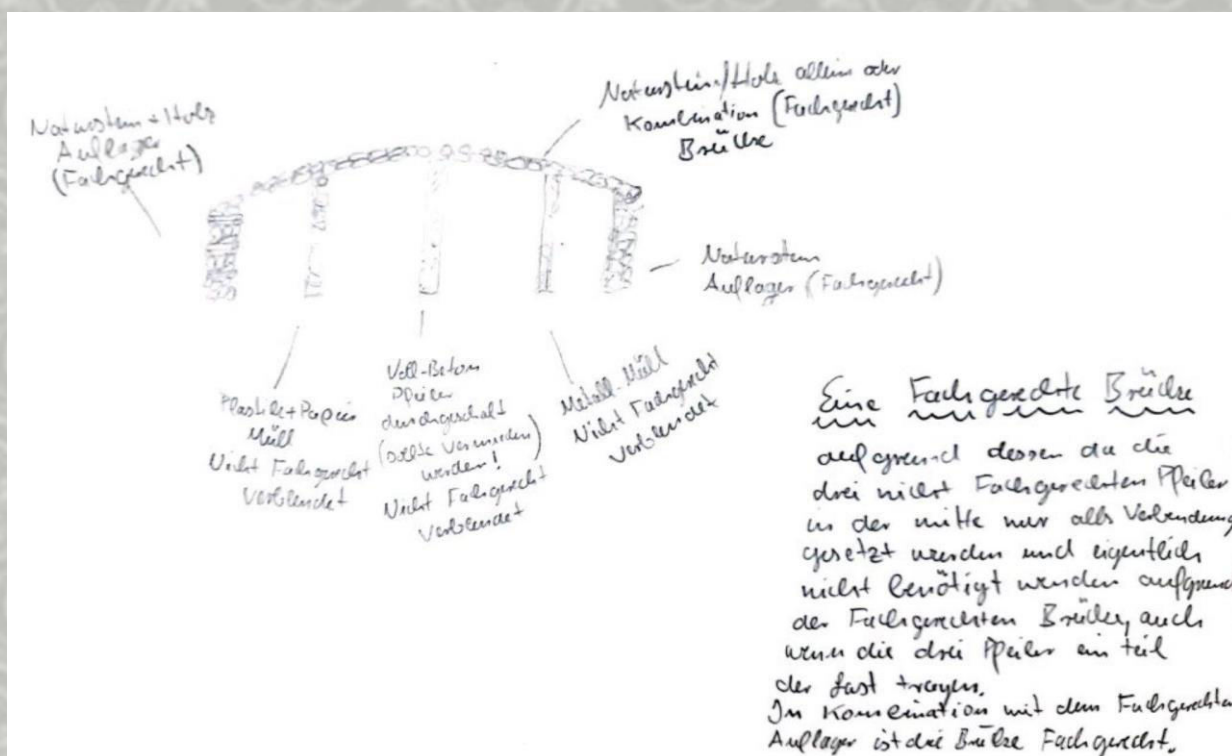 Naturstein + Holz
Auflager
(Fachgerecht)
Naturstein/Holz allein oder
Kombination (Fachgerecht)
Brücke
Naturstein
Auflager (Fachgerecht)
Plastik + Papier
Müll
Nicht Fachgerecht
Verblendet
Voll-Beton
Pfeiler
durchgeschalt
(sollte Vermieden
werden!)
Nicht Fachgerecht
verblendet
Metall-Müll
Nicht Fachgerecht
verblendet
Eine Fachgerechte Brücke
aufgrund dessen da die
drei nicht Fachgerechten Pfeiler
in der mitte nur alls Verbendung
gesetzt werden und eigentlich
nicht benötigt werden aufgrund
der Fachgerechten Brücke, auch
wenn die drei Pfeiler ein teil
der Last tragen.
In Kombination mit dem Fachgerechten
Auflager ist die Brücke Fachgerecht.